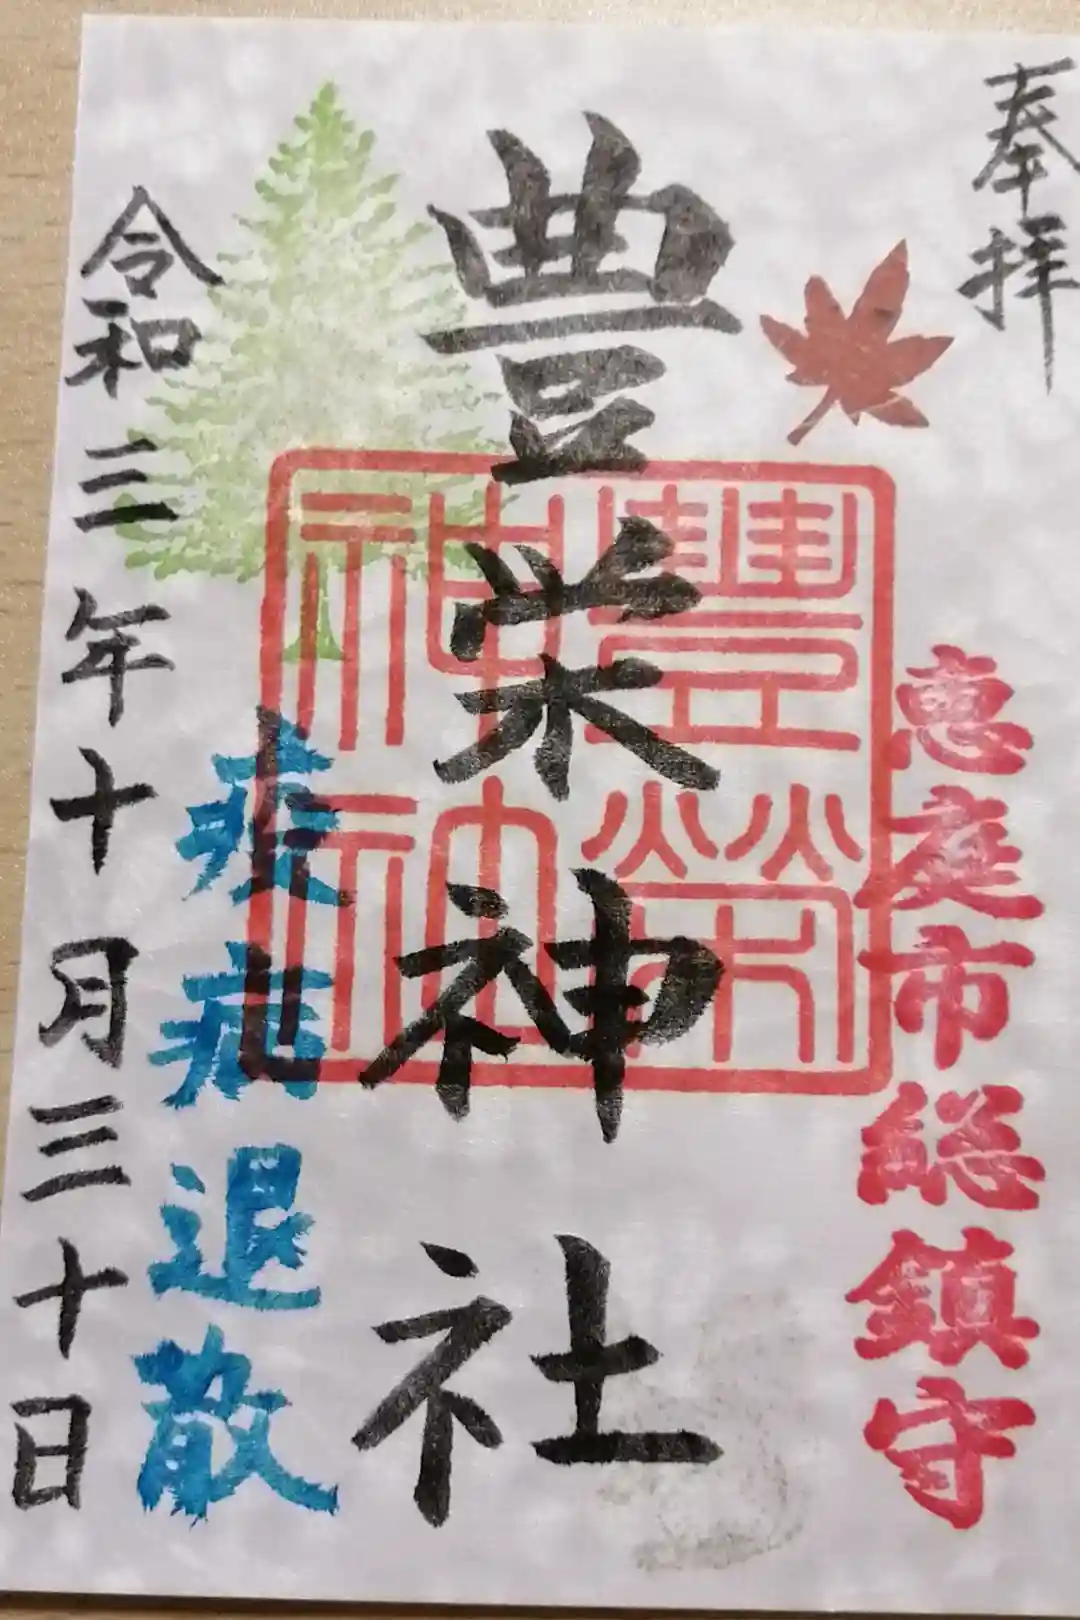 奉拝
恵庭市総鎮守
豊栄神社
豐榮
神社
疫病退散
令和三年十月三十日